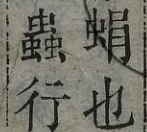 蜎也
蟲行